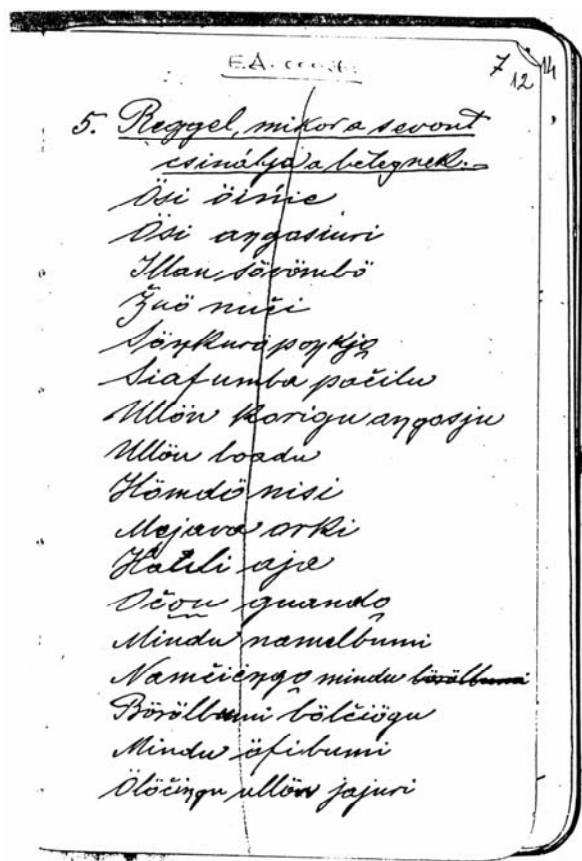 7 14
12
5. Reggel, mikor a sevont
csinálja a betegnek.
Ösi öińie
Ösi aŋgasiuri
Illau sörömbö
Žuö nuči
Söŋkurö poŋkjo
Siafumba pačilu
Ullön korigu aŋgosju
Ullön loadu
Hömdö nisi
Mojava orki
Hatuli aja
Očou guando
Mindu namelbumi
Namčiŋgo mindu
Börölbumi bölčiögu
Mindu öfibumi
Ölöčiŋgu ullön jajuri